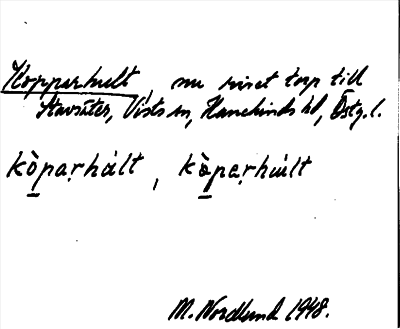 Kopparhult nu rivet torp till
Stavsäter, Vists sn, Hanekinds hd, Östg. l.
kòparhált, kòparhùlt
M. Nordlund 1948.